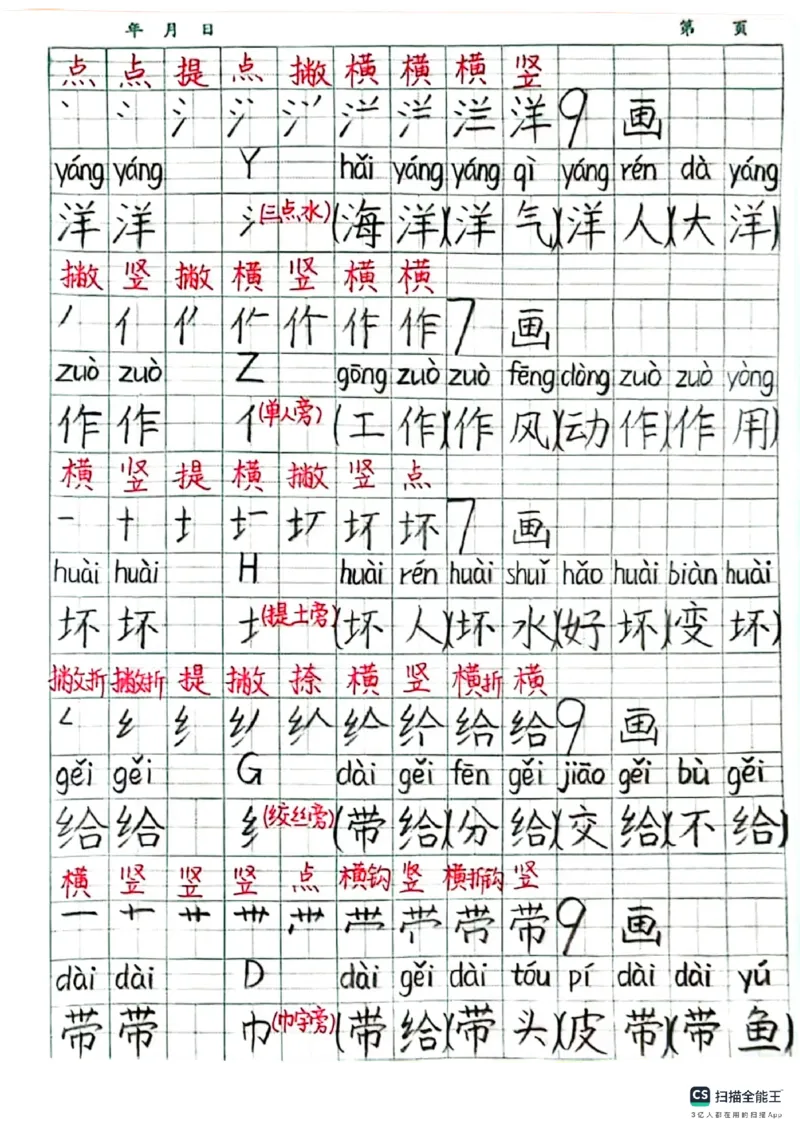 年 月 日 第 页
点 点 提 点 撇 横 横 横 竖
洋 9 画
yáng yáng Y hǎi yáng yáng qì yáng rén dà yáng
洋 洋 氵(三点水) (海 洋)(洋 气)(洋 人)(大 洋)
撇 竖 撇 横 竖 横 横
丿 亻 作 作 7 画
zuò zuò Z gōng zuò zuò fēng dòng zuò zuò yòng
作 作 亻(单人旁) (工 作)(作 风)(动 作)(作 用)
横 竖 提 横 撇 竖 点
一 十 坏 坏 7 画
huài huài H huài rén huài shuǐ hǎo huài biàn huài
坏 坏 (提土旁) (坏 人)(坏 水)(好 坏)(变 坏)
撇折 撇折 提 撇 捺 横 竖 横折 横
纟 给 给 9 画
gěi gěi G dài gěi fēn gěi jiāo gěi bù gěi
给 给 纟(绞丝旁) (带 给)(分 给)(交 给)(不 给)
横 竖 竖 竖 点 横钩 竖 横折钩 竖
一 十 艹 卅 带 带 9 画
dài dài D dài gěi dài tóu pí dài dài yú
带 带 巾(巾字旁) (带 给)(带 头)(皮 带)(带 鱼)
CS 扫描全能王
3亿人都在用的扫描App